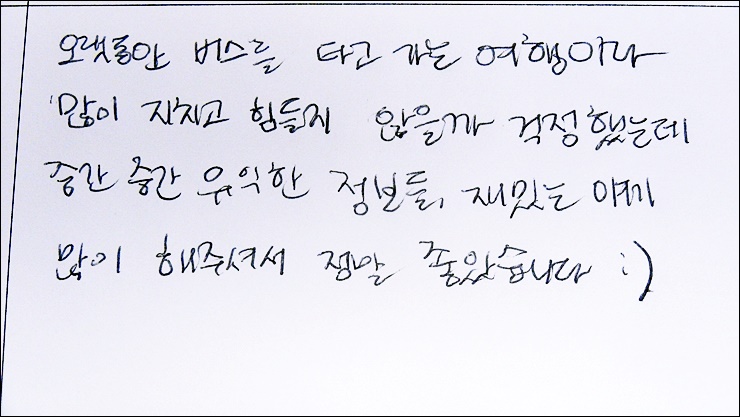 오랫동안 버스를 타고 가는 여행이라
많이 지치고 힘들지 않을까 걱정했는데
중간 중간 유익한 정보들, 재밌는 얘기
많이 해주셔서 정말 좋았습니다 :)